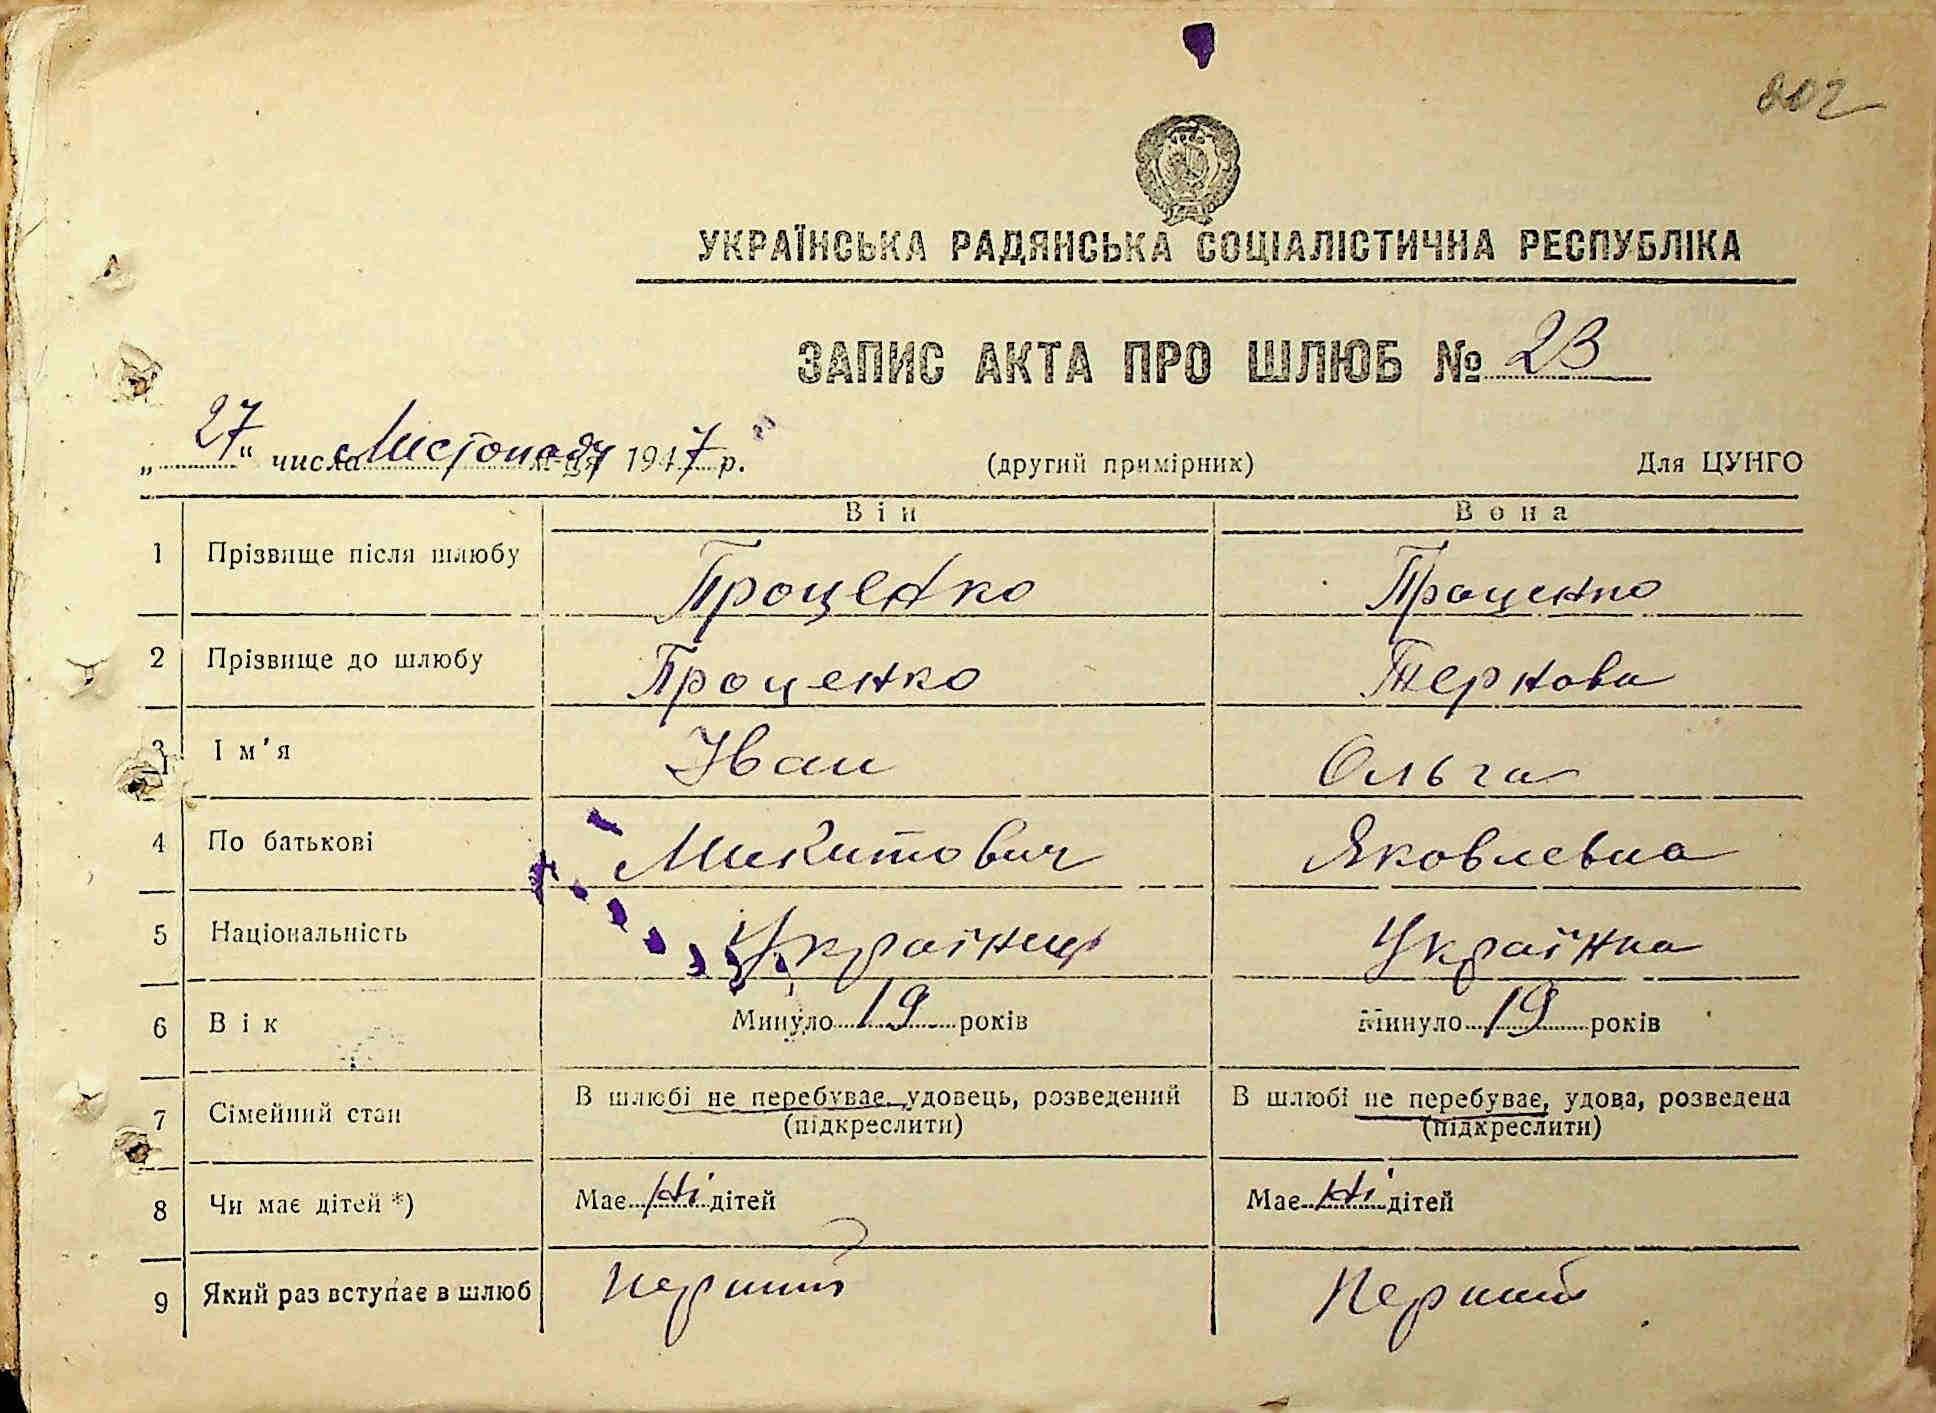 202
УКРАЇНСЬКА РАДЯНСЬКА СОЦІАЛІСТИЧНА РЕСПУБЛІКА
ЗАПИС АКТА ПРО ШЛЮБ № 23
„27“ числа Листопаду м-ця 1947 р. (другий примірник) Для ЦУНГО
Він Вона
1 Прізвище після шлюбу Проценко Проценко
2 Прізвище до шлюбу Проценко Тернова
3 Ім'я Іван Ольга
4 По батькові Микитович Яковлевна
5 Національність Українець Українка
6 Вік Минуло 19 років Минуло 19 років
7 Сімейний стан В шлюбі не перебуває, удовець, розведений В шлюбі не перебуває, удова, розведена
(підкреслити) (підкреслити)
8 Чи має дітей *) Має ні дітей Має ні дітей
9 Який раз вступає в шлюб Перший Перший